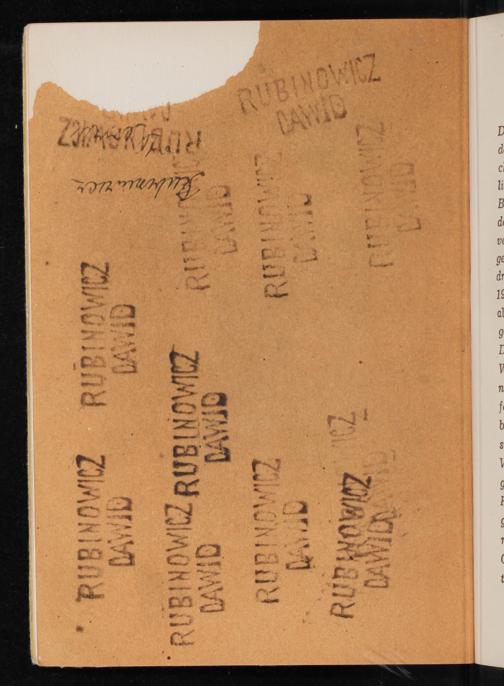 RUBINOWICZ
DAWID
RUBINOWICZ
Rubinowicz
RUBINOWICZ
DAWID
RUBINOWICZ
DAWID
RUBINOWICZ
DAWID
RUBINOWICZ
DAWID
RUBINOWICZ
DAWID
RUBINOWICZ
DAWID
RUBINOWICZ
DAWID
RUBINOWICZ
DAWID
RUBINOWICZ
DAWID